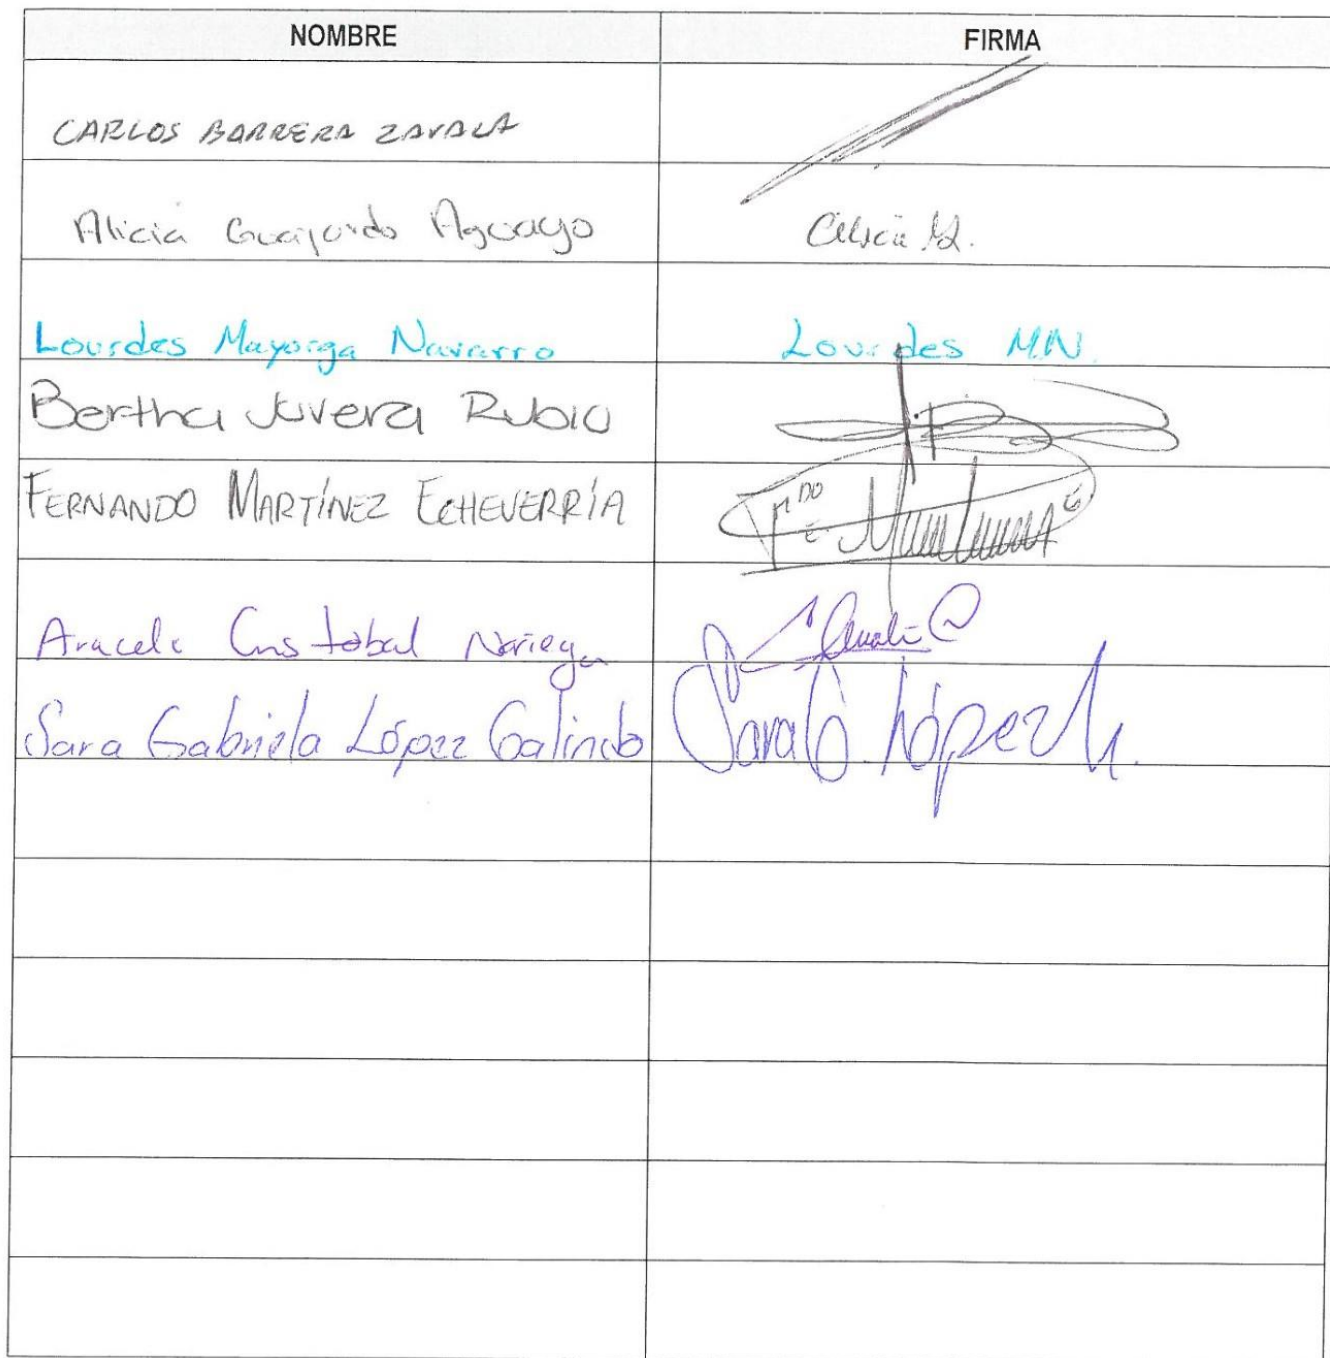 NOMBRE FIRMA
CARLOS BARRERA ZAVALA
Alicia Guajardo Aguayo
Lourdes Mayorga Navarro Lourdes MN.
Bertha Juvera Rubio
FERNANDO MARTÍNEZ ECHEVERRÍA
Araceli Cristobal Noriega
Sara Gabriela López Galindo Sara G. López G.